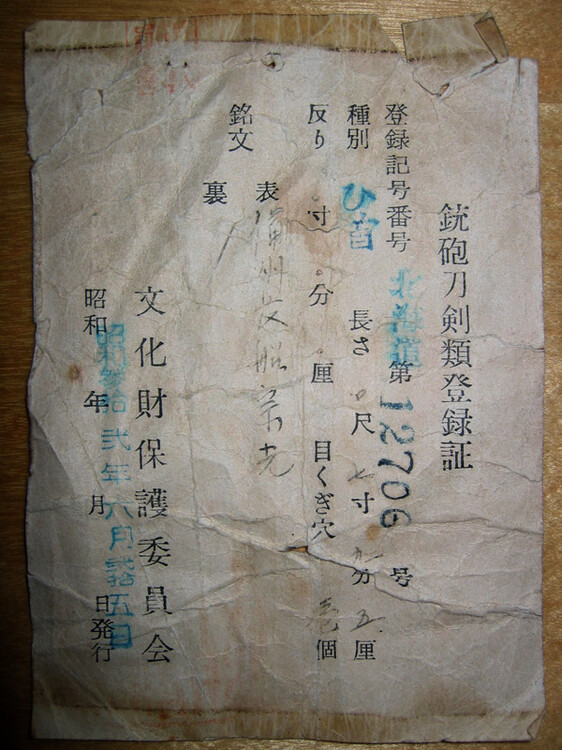 銃砲刀剣類登録証
登録記号番号 北海道 第 12706 号
種別 ひ首 長さ 0尺 七寸 九分 五厘
反り .寸 .分 .厘 目くぎ穴 壱個
銘文 表 備州長船 光
裏
文化財保護委員会
昭和 年 月 日発行
昭和参拾弐年六月弐拾五日